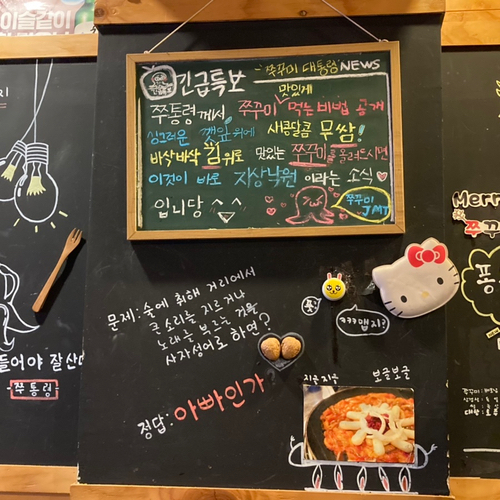 이슬같이
긴급특보 - 쭈꾸미 대통령 NEWS
맛있게
쭈통령께서 쭈꾸미 먹는 비법 공개
싱그러운 깻잎 위에 새콤달콤 무쌈!
바삭바삭 김 위로 맛있는 쭈꾸미를 올려드시면
이것이 바로 지상낙원 이라는 소식
입니당 ^^
쭈꾸미
JMT
문제: 술에 취해 거리에서
큰 소리를 지르거나
노래를 부르는 것을
사자성어로 하면?
정답: 아빠인가
ㅋㅋ맵지?
지글지글 보글보글
들어야 잘산다
쭈통령
Merr
쭈꾸